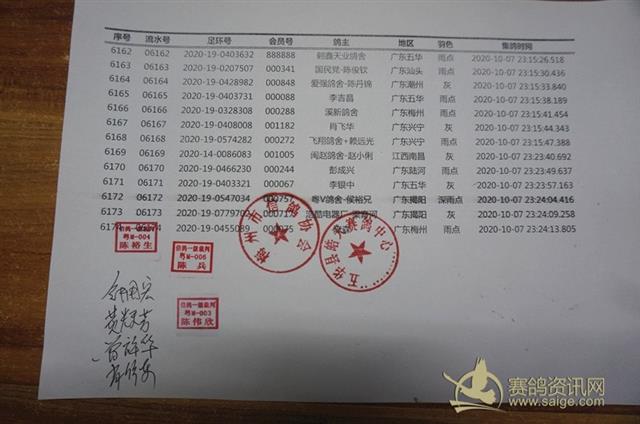 序号 流水号 足环号 会员号 鸽主 地区 羽色 集鸽时间
6162 06162 2020-19-0403632 888888 翱鑫天业鸽舍 广东五华 雨点 2020-10-07 23:15:26.518
6163 06163 2020-19-0207507 000341 国民党-陈俊钦 广东汕头 雨点 2020-10-07 23:15:30.436
6164 06164 2020-19-0428982 000848 爱强鸽舍-陈丹锦 广东潮州 灰 2020-10-07 23:15:33.840
6165 06165 2020-19-0403731 000088 李吉昌 广东五华 雨点 2020-10-07 23:15:38.189
6166 06166 2020-19-0328308 000288 溪新鸽舍 广东梅州 雨点 2020-10-07 23:15:41.454
6167 06167 2020-19-0408008 001182 肖飞华 广东兴宁 灰 2020-10-07 23:15:44.343
6168 06168 2020-19-0574282 000272 飞翔鸽舍+赖远光 广东兴宁 雨点 2020-10-07 23:15:47.388
6169 06169 2020-14-0086083 001005 闽赵鸽舍-赵小俐 江西南昌 灰 2020-10-07 23:23:40.692
6170 06170 2020-19-0466230 000244 彭成兴 广东陆河 雨点 2020-10-07 23:23:49.637
6171 06171 2020-19-0403321 000067 李银中 广东五华 灰 2020-10-07 23:23:57.160
6172 06172 2020-19-0547034 000757 粤V鸽舍-侯裕兄 广东揭阳 深雨点 2020-10-07 23:24:04.416
6173 06173 2020-19-0779702 000717 广东揭阳 灰 2020-10-07 23:24:09.258
6174 06174 2020-19-0455089 000075 广东梅州 雨点 2020-10-07 23:24:13.805
梅州市信鸽协会
五华县 赛鸽中心
粤M-004
陈裕生
信鸽一级裁判
粤M-006
陈兵
信鸽一级裁判
粤M-003
陈伟欣
赛鸽资讯网
www.saige.com